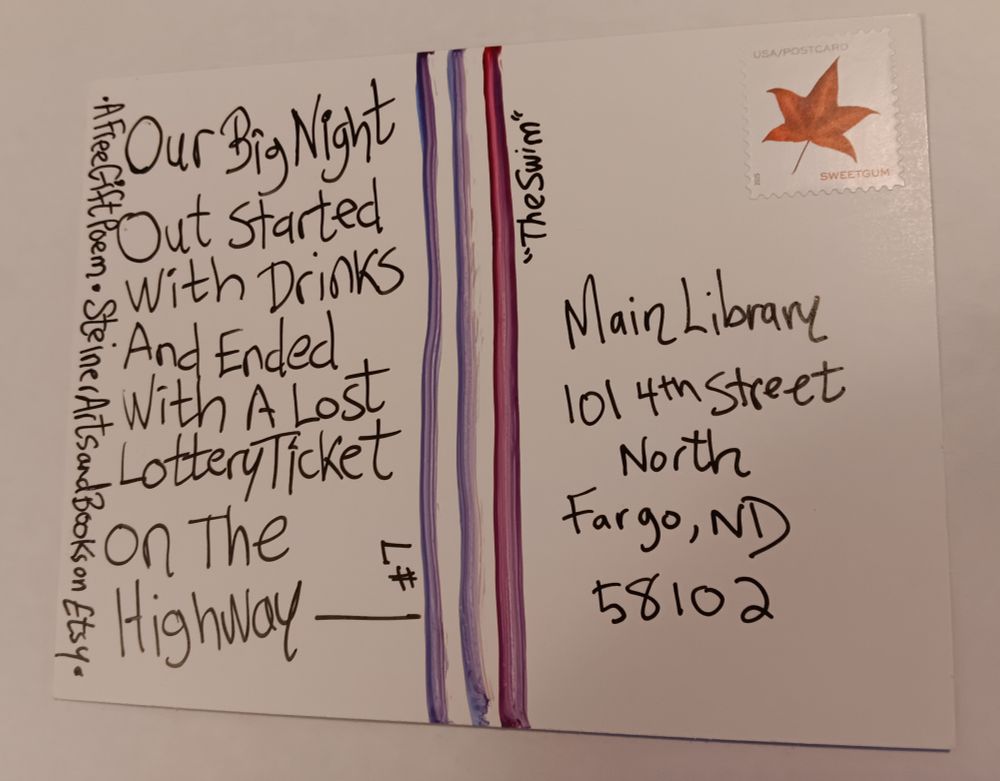 ·A Free Gift Poem · Steiner Arts and Books on Etsy·
Our Big Night
Out started
With Drinks
And Ended
With A Lost
Lottery Ticket
on The
Highway —
#7
"The Swim"
USA/POSTCARD
SWEETGUM
Main Library
101 4th Street
North
Fargo, ND
58102